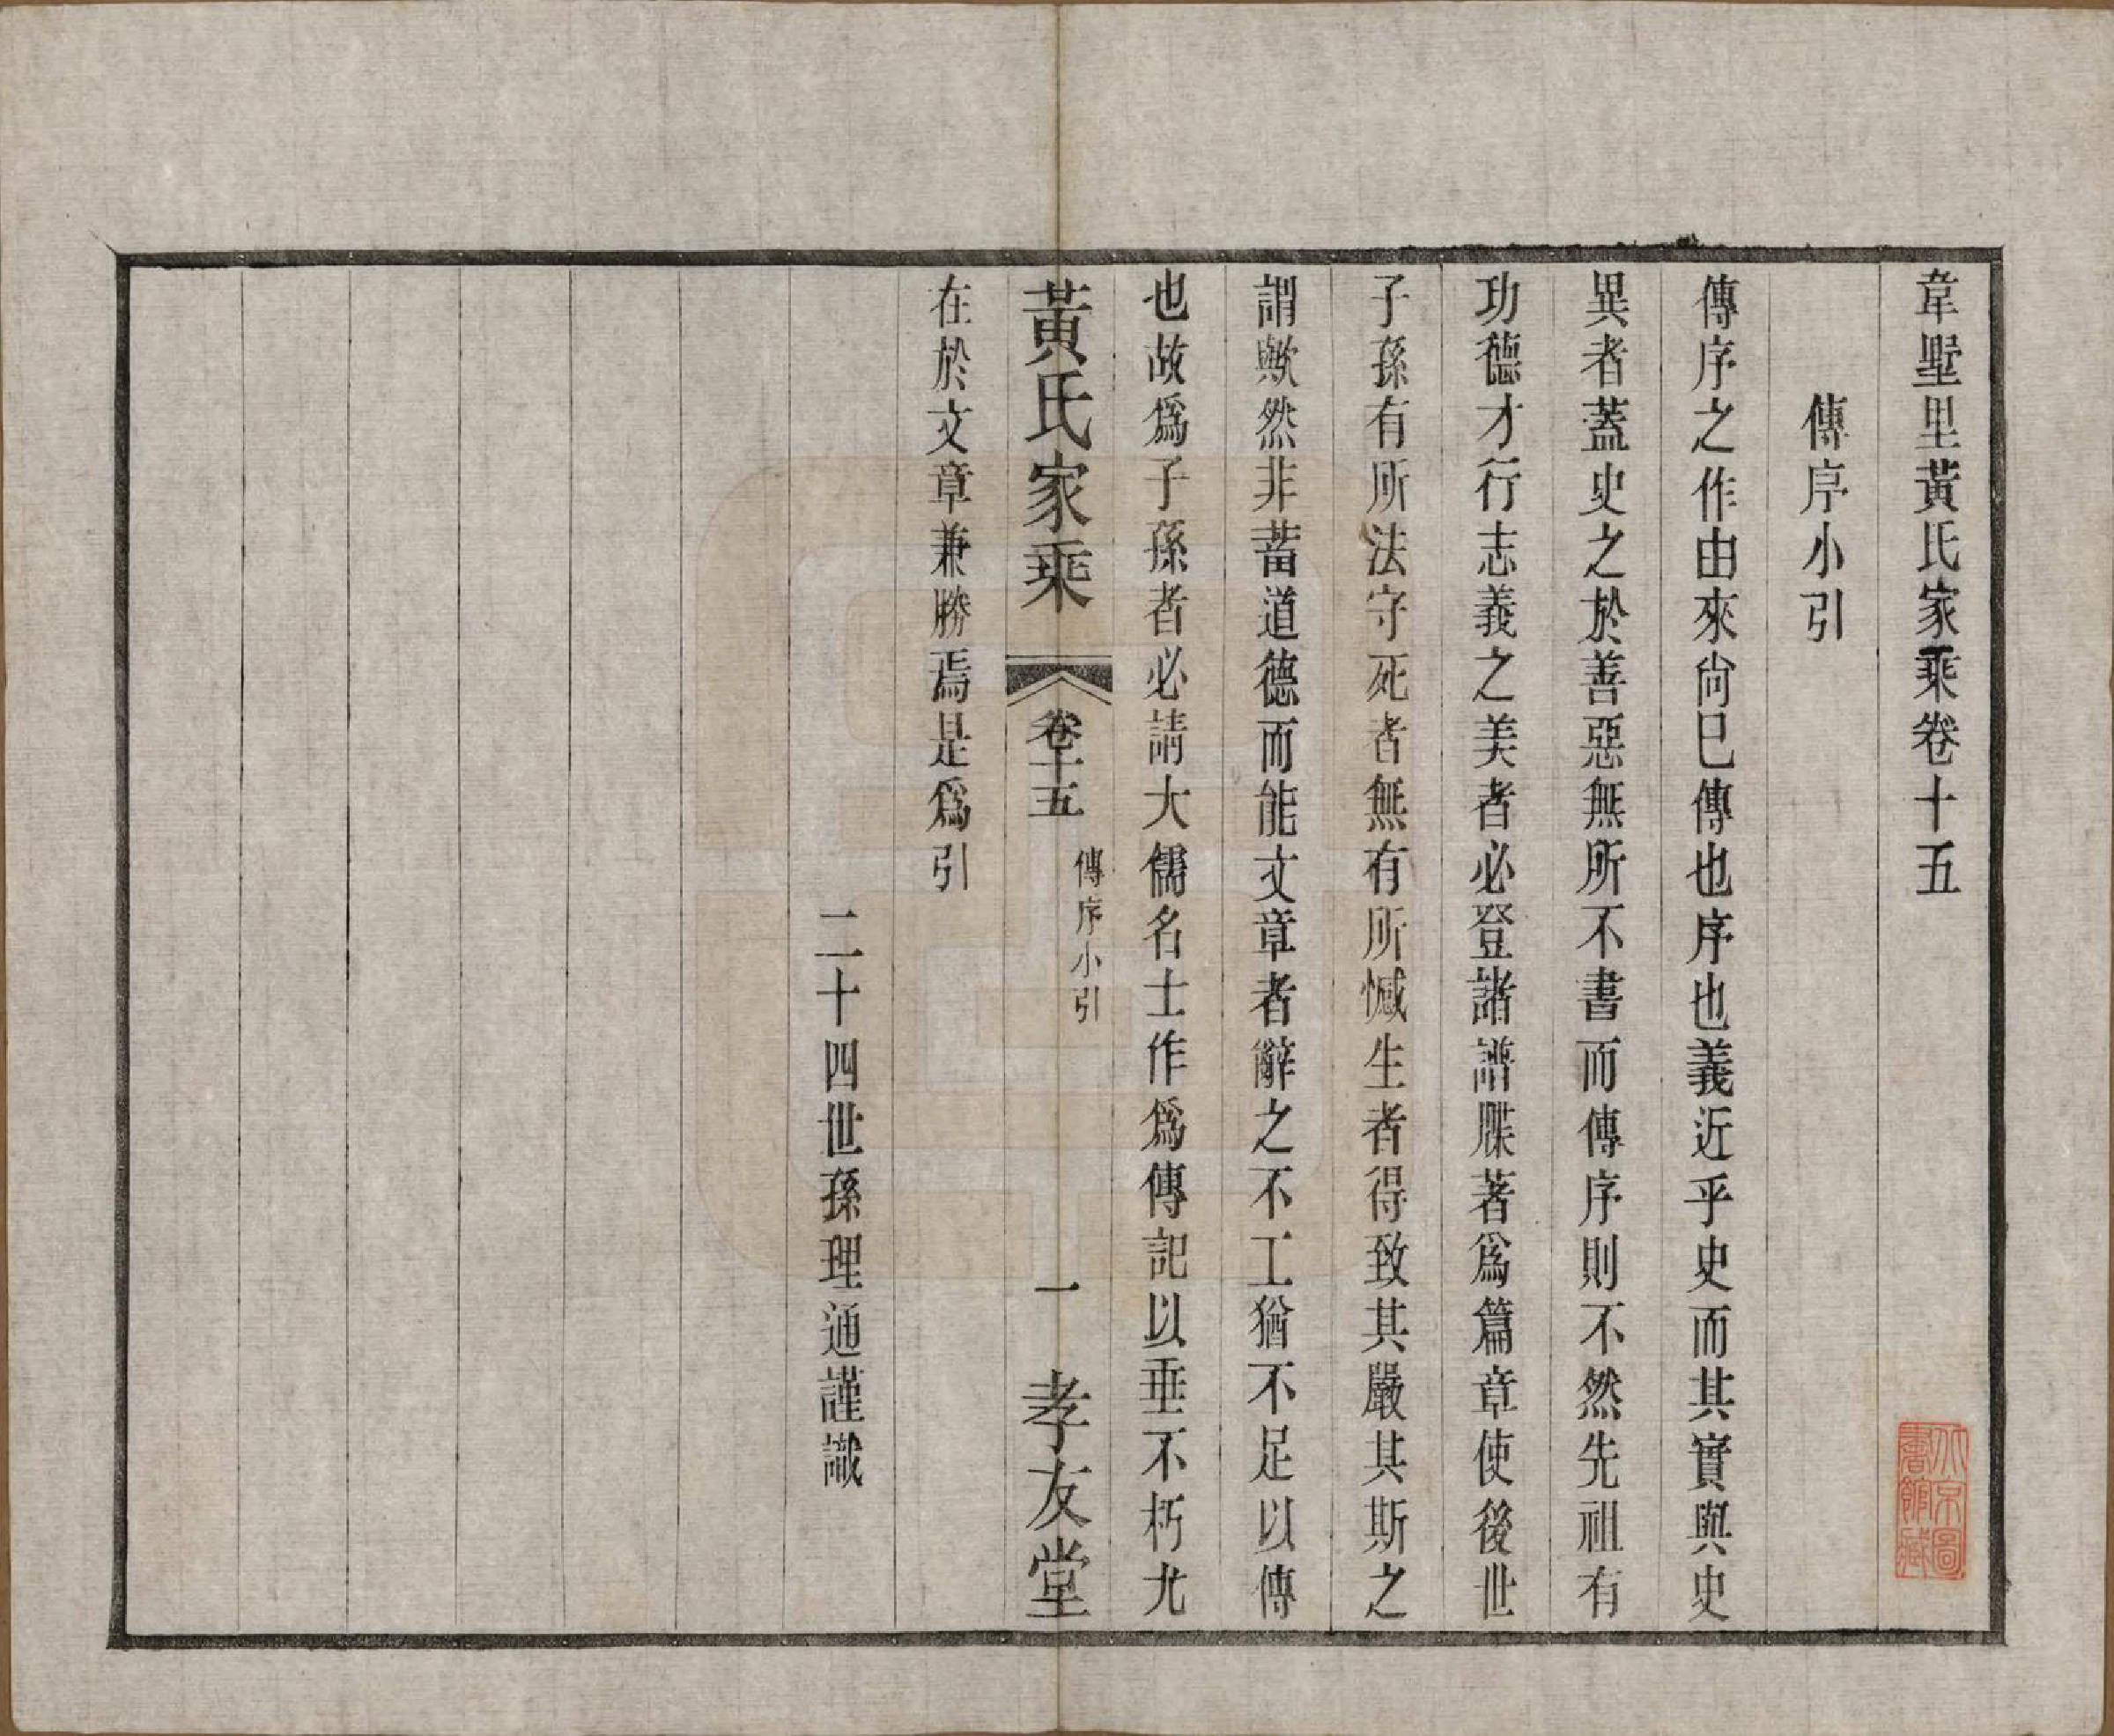 韋墅里黃氏家乘卷十五
傳序小引
傳序之作由來尙巳傳也序也義近乎史而其實與史
異者蓋史之於善惡無所不書而傳序則不然先祖有
功德才行志義之美者必登諸譜牒著爲篇章使後世
子孫有所法守死者無有所憾生者得致其嚴其斯之
謂歟然非蓄道德而能文章者辭之不工猶不足以傳
也故爲子孫者必請大儒名士作爲傳記以垂不朽尤
黃氏家乘
卷十五
傳序小引
一
孝友堂
在於文章兼勝焉是爲引
二十四世孫理通謹識